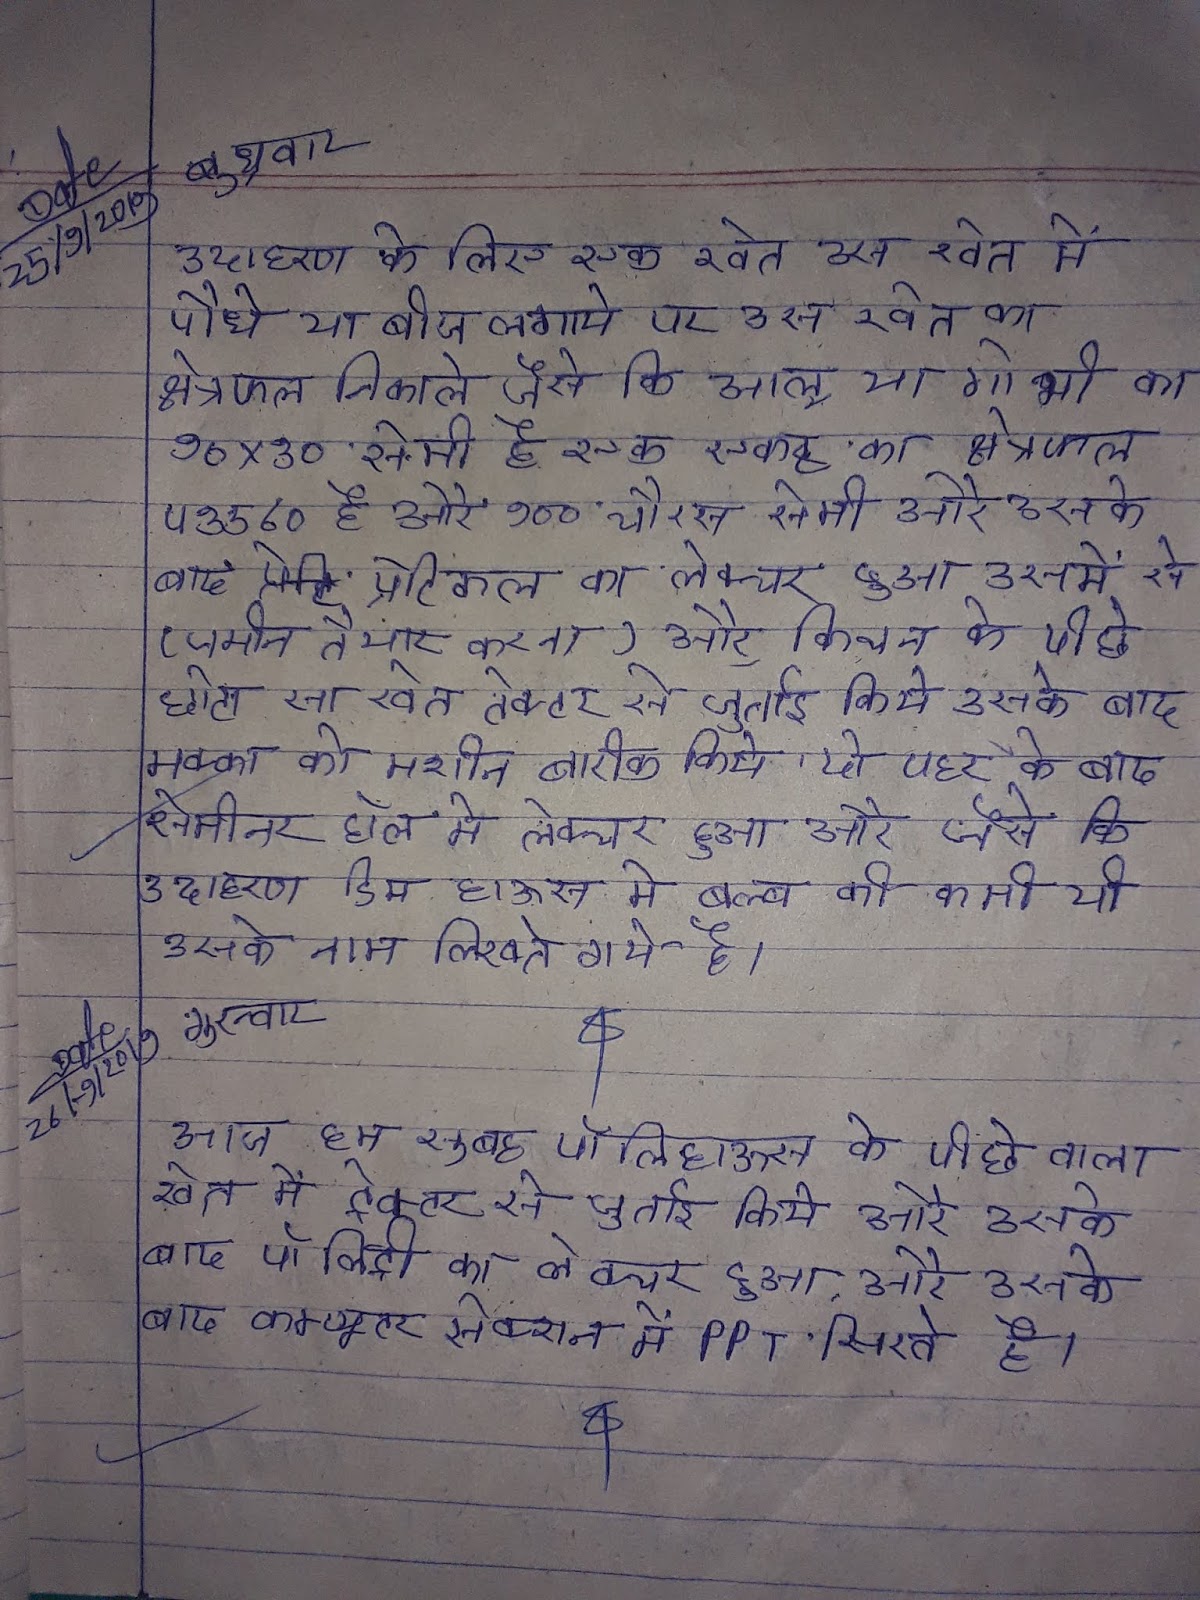 Date
25/9/2019
बुधवार
उदाहरण के लिए एक खेत उस खेत में
पौधे या बीज लगाये पर उस खेत का
क्षेत्रफल निकाले जैसे कि आलू या गोभी का
१०x३० से.मी है एक एकड़ का क्षेत्रफल
४३५६० है और १०० चौरस सेमी और उसके
बाद प्रेटिकल का लेक्चर हुआ उसमें से
(जमीन तैयार करना) और किचन के पीछे
छोटा सा खेत ट्रेक्टर से जुताई किये उसके बाद
मक्का को मशीन बारीक किये दो पहर के बाद
सेमीनर हॉल मे लेक्चर हुआ और जैसे कि
उदाहरण डिम हाऊस मे बल्ब की कमी थी
उसके नाम लिखते गये है।
Date
26/9/2019
गुरूवार
आज हम सुबह पॉलिहाऊस के पीछे वाला
खेत में ट्रेक्टर से जुताई किये और उसके
बाद पॉलिट्री का लेक्चर हुआ और उसके
बाद कम्प्यूटर सेक्शन में PPT सिखे है।